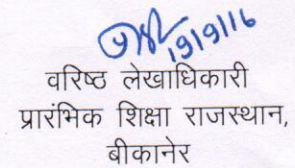 19/9/16
वरिष्ठ लेखाधिकारी
प्रारंभिक शिक्षा राजस्थान,
बीकानेर